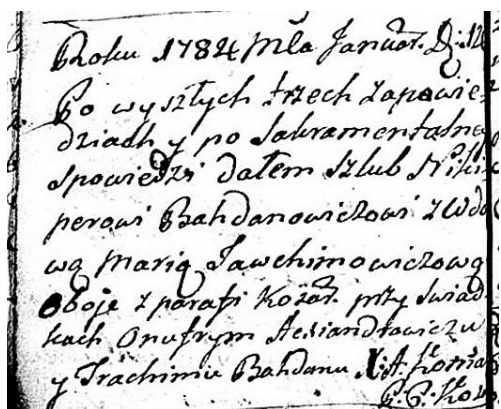 Roku 1784 Mca Januar. D: 12
Po wyszłych trzech zapowie
dziach y po Sakramentalney
Spowiedzi dałem szlub Niki
perowi Bahdanowiczowi z Wdo
wą Marią Jawchimowiczową
Oboje z parafi Kozar. przy swiad
kach Onufrym Alexandrowiczu
y Trachimie Bahdanu X: A.